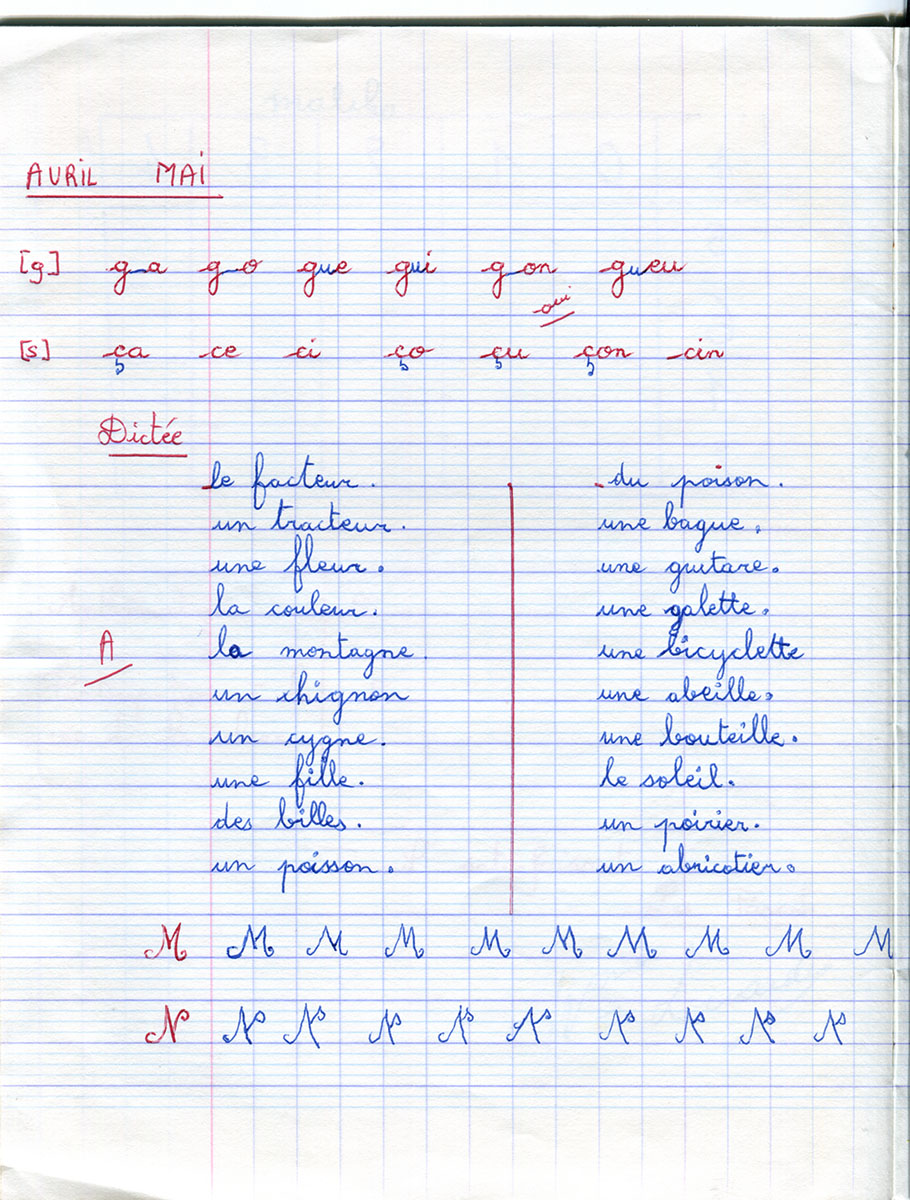 AVRIL MAI
[g] ga go gue gui gon gueu
oui
[s] ça ce ci ço çu çon cin
Dictée
le facteur.
un tracteur.
une fleur.
la couleur.
A
la montagne.
un chignon
un cygne.
une fille.
des billes.
un poisson.
du poison.
une bague.
une guitare.
une galette.
une bicyclette
une abeille.
une bouteille.
le soleil.
un poirier.
un abricotier.
M M M M M M M M M M
N N N N N N N N N N